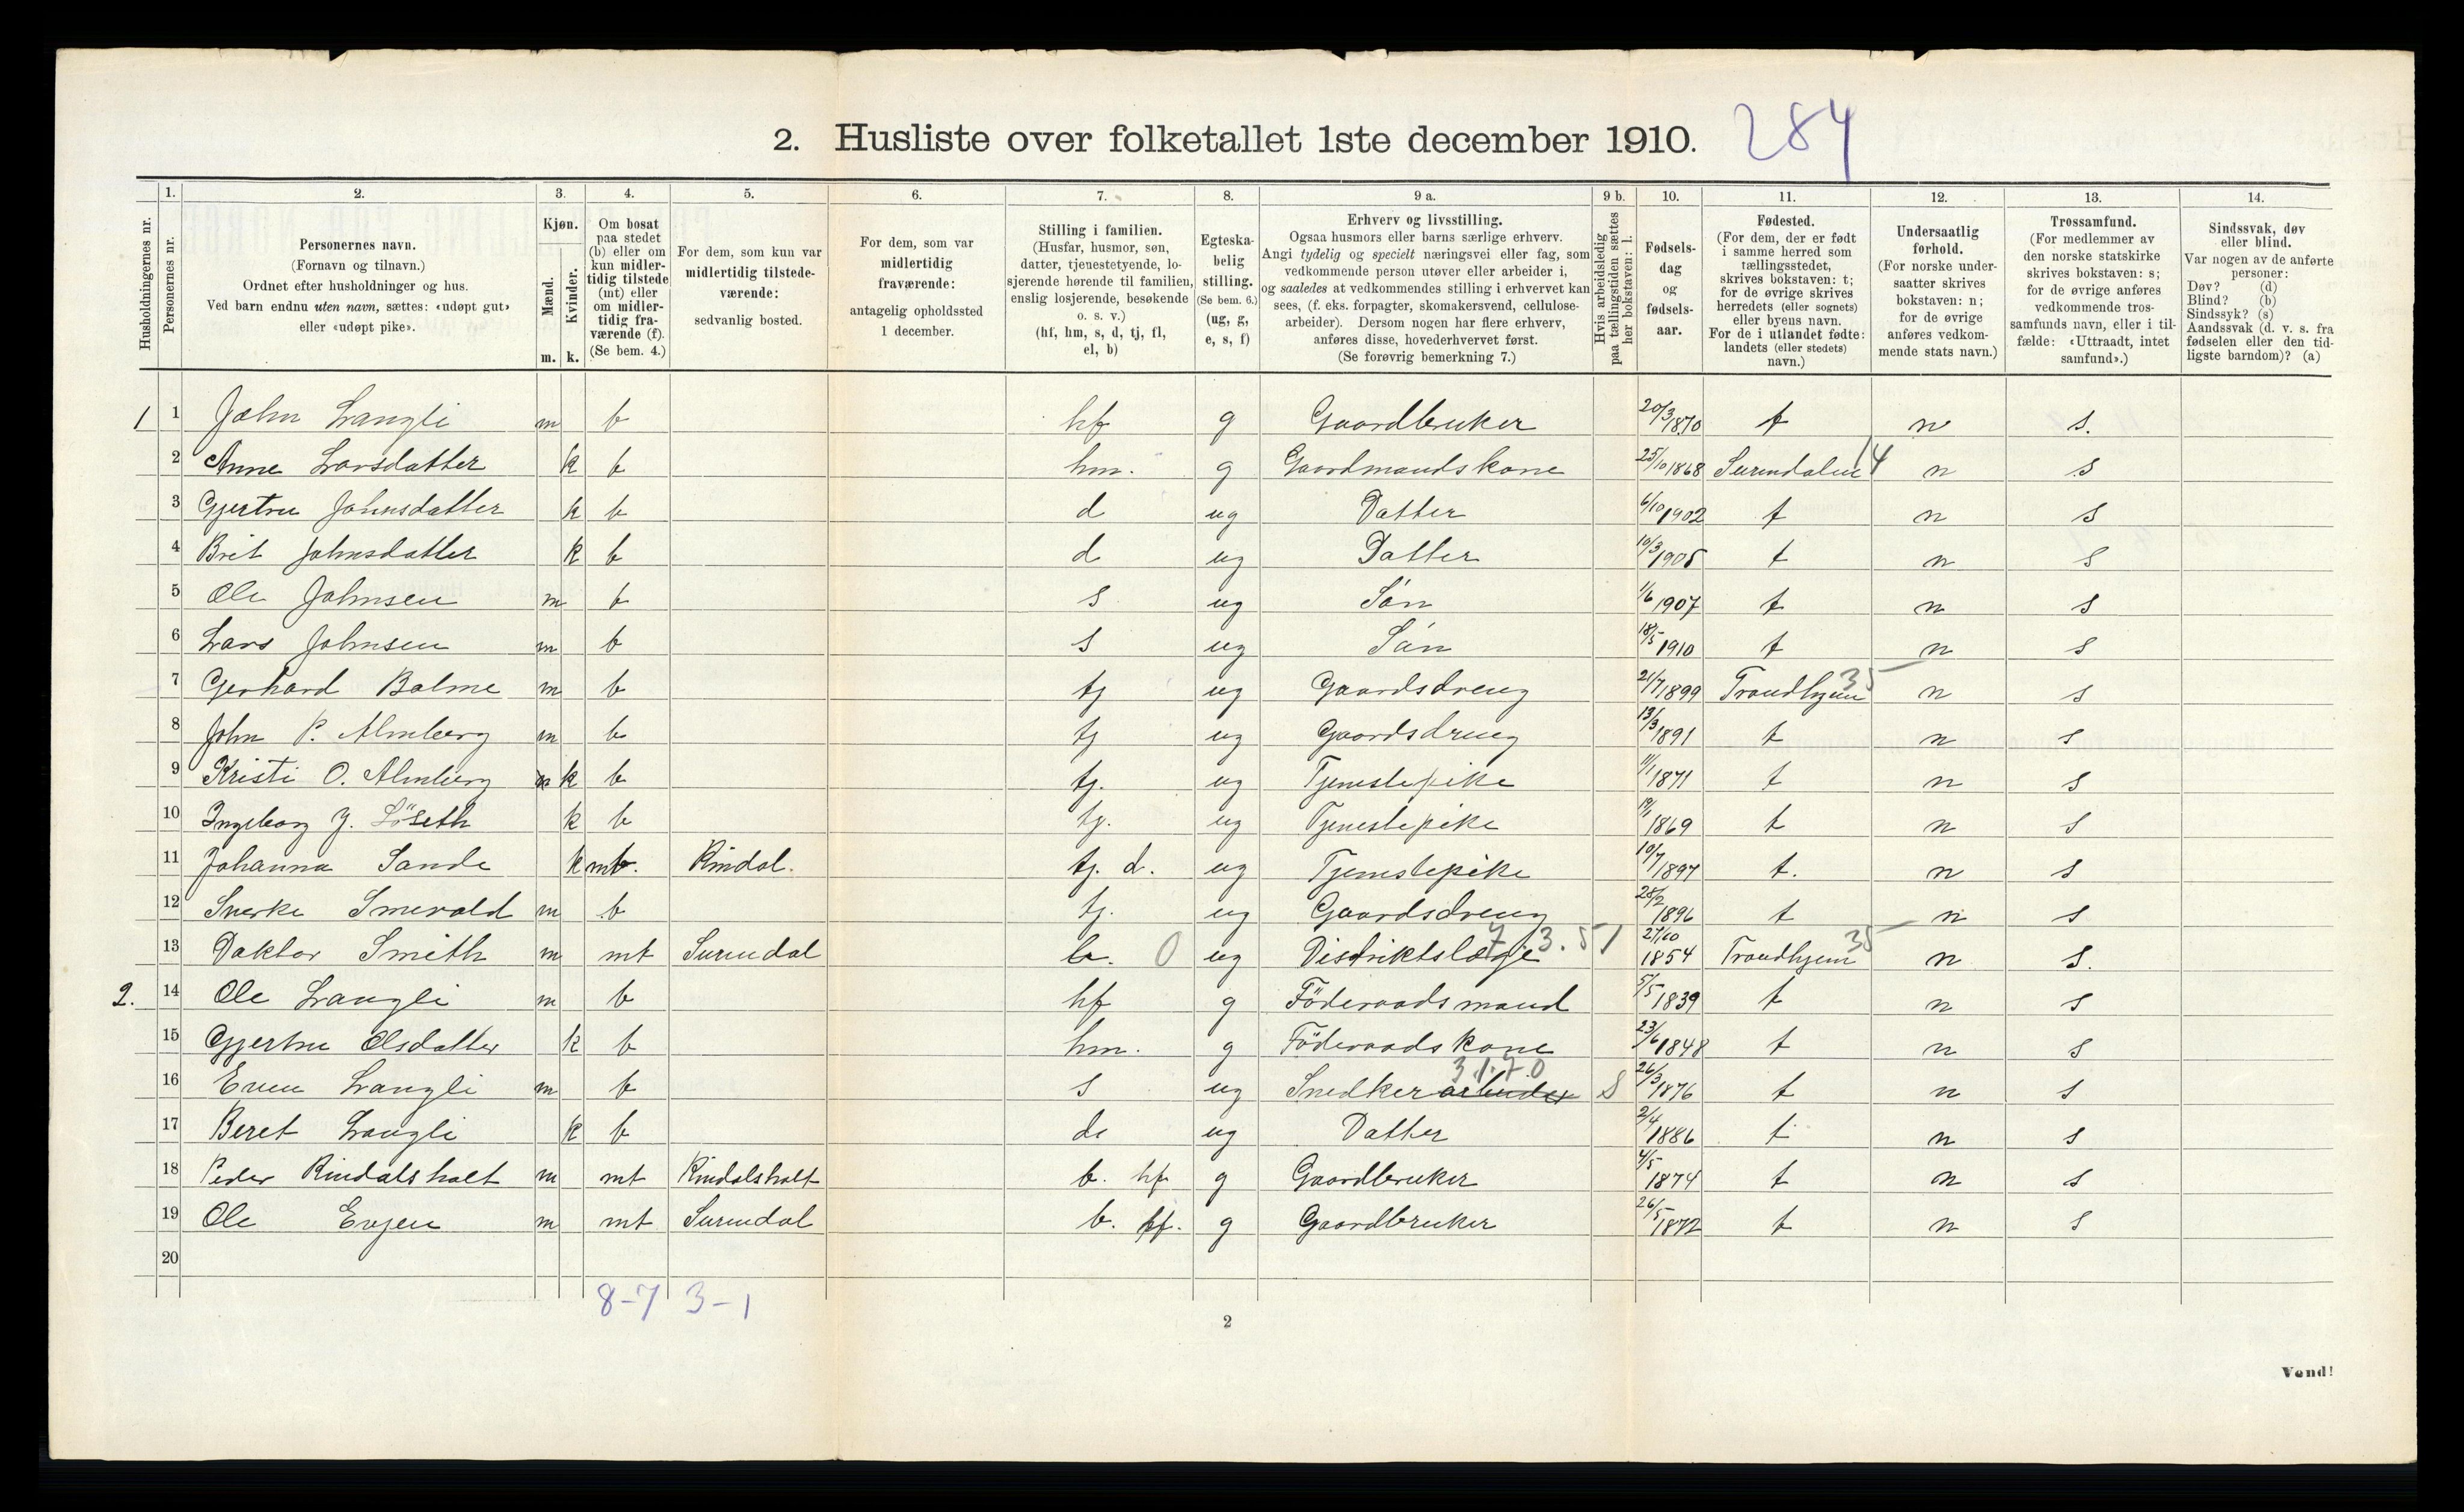 2. Husliste over folketallet 1ste december 1910. 284
Husholdningernes nr.
1. Personernes nr.
2. Personernes navn. (Fornavn og tilnavn.) Ordnet efter husholdninger og hus. Ved barn endnu uten navn, sættes: «udøpt gut» eller «udøpt pike».
3. Kjøn. Mænd. m. Kvinder. k.
4. Om bosat paa stedet (b) eller om kun midlertidig tilstede (mt) eller om midlertidig fraværende (f). (Se bem. 4.)
5. For dem, som kun var midlertidig tilstedeværende: sedvanlig bosted.
6. For dem, som var midlertidig fraværende: antagelig opholdssted 1 december.
7. Stilling i familien. (Husfar, husmor, søn, datter, tjenestetyende, losjerende hørende til familien, enslig losjerende, besøkende o. s. v.) (hf, hm, s, d, tj, fl, el, b)
8. Egteskabelig stilling. (Se bem. 6.) (ug, g, e, s, f)
9 a. Erhverv og livsstilling. Ogsaa husmors eller barns særlige erhverv. Angi tydelig og specielt næringsvei eller fag, som vedkommende person utøver eller arbeider i, og saaledes at vedkommendes stilling i erhvervet kan sees, (f. eks. forpagter, skomakersvend, cellulosearbeider). Dersom nogen har flere erhverv, anføres disse, hovederhvervet først. (Se forøvrig bemerkning 7.)
9 b. Hvis arbeidsledig paa tællingstiden sættes her bokstaven: l.
10. Fødselsdag og fødselsaar.
11. Fødested. (For dem, der er født i samme herred som tællingsstedet, skrives bokstaven: t; for de øvrige skrives herredets (eller sognets) eller byens navn. For de i utlandet fødte: landets (eller stedets) navn.)
12. Undersaatlig forhold. (For norske undersaatter skrives bokstaven: n; for de øvrige anføres vedkommende stats navn.)
13. Trossamfund. (For medlemmer av den norske statskirke skrives bokstaven: s; for de øvrige anføres vedkommende trossamfunds navn, eller i tilfælde: «Uttraadt, intet samfund».)
14. Sindssvak, døv eller blind. Var nogen av de anførte personer: Døv? (d) Blind? (b) Sindssyk? (s) Aandssvak (d. v. s. fra fødselen eller den tidligste barndom)? (a)
1 1 John Langli m b hf g Gaardbruker 20/3 1870 t n s.
2 Anne Larsdatter k b hm. g Gaardmandskone 25/10 1868 Surendalen 14 n s
3 Gjertru Johnsdatter k b d ug Datter 6/10 1902 t n s
4 Brit Johnsdatter k b d ug Datter 10/3 1905 t n s
5 Ole Johnsen m b s ug Sön 1/6 1907 t n s
6 Lars Johnsen m b s ug Sön 18/5 1910 t n s
7 Gerhard Balme m b tj ug Gaardsdreng 21/7 1899 Trondhjem 35 n s
8 John P. Almberg m b tj ug Gaardsdreng 13/3 1891 t n s
9 Kristi O. Almberg k b tj. ug Tjenestepike 11/1 1871 t n s
10 Ingeborg J. Löseth k b tj. ug Tjenestepike 19/1 1869 t n s
11 Johanna Sande k mt. Rindal. tj. d. ug Tjenestepike 10/7 1897 t. n s
12 Sverke Smevold m b tj. ug Gaardsdreng 28/2 1896 t n s
13 Doktor Smith m mt Surendal b. 0 ug Distriktslæge 7 3.51 27/10 1854 Trondhjem 35 n s.
2. 14 Ole Langli m b hf g Föderaadsmand 5/5 1839 t n s
15 Gjertru Olsdatter k b hm. g Föderaadskone 23/6 1848 t n s
16 Even Langli m b s ug Snedkerarbeider 31.70 S 26/3 1876 t n s
17 Beret Langli k b d ug Datter 2/4 1886 t n s
18 Peder Rindalsholt m mt Rindalsholt b. hf g Gaardbruker 4/5 1874 t n s
19 Ole Evjen m mt Surendal b. hf. g Gaardbruker 26/5 1872 t n s
20
8-7 3-1
2
Vend!